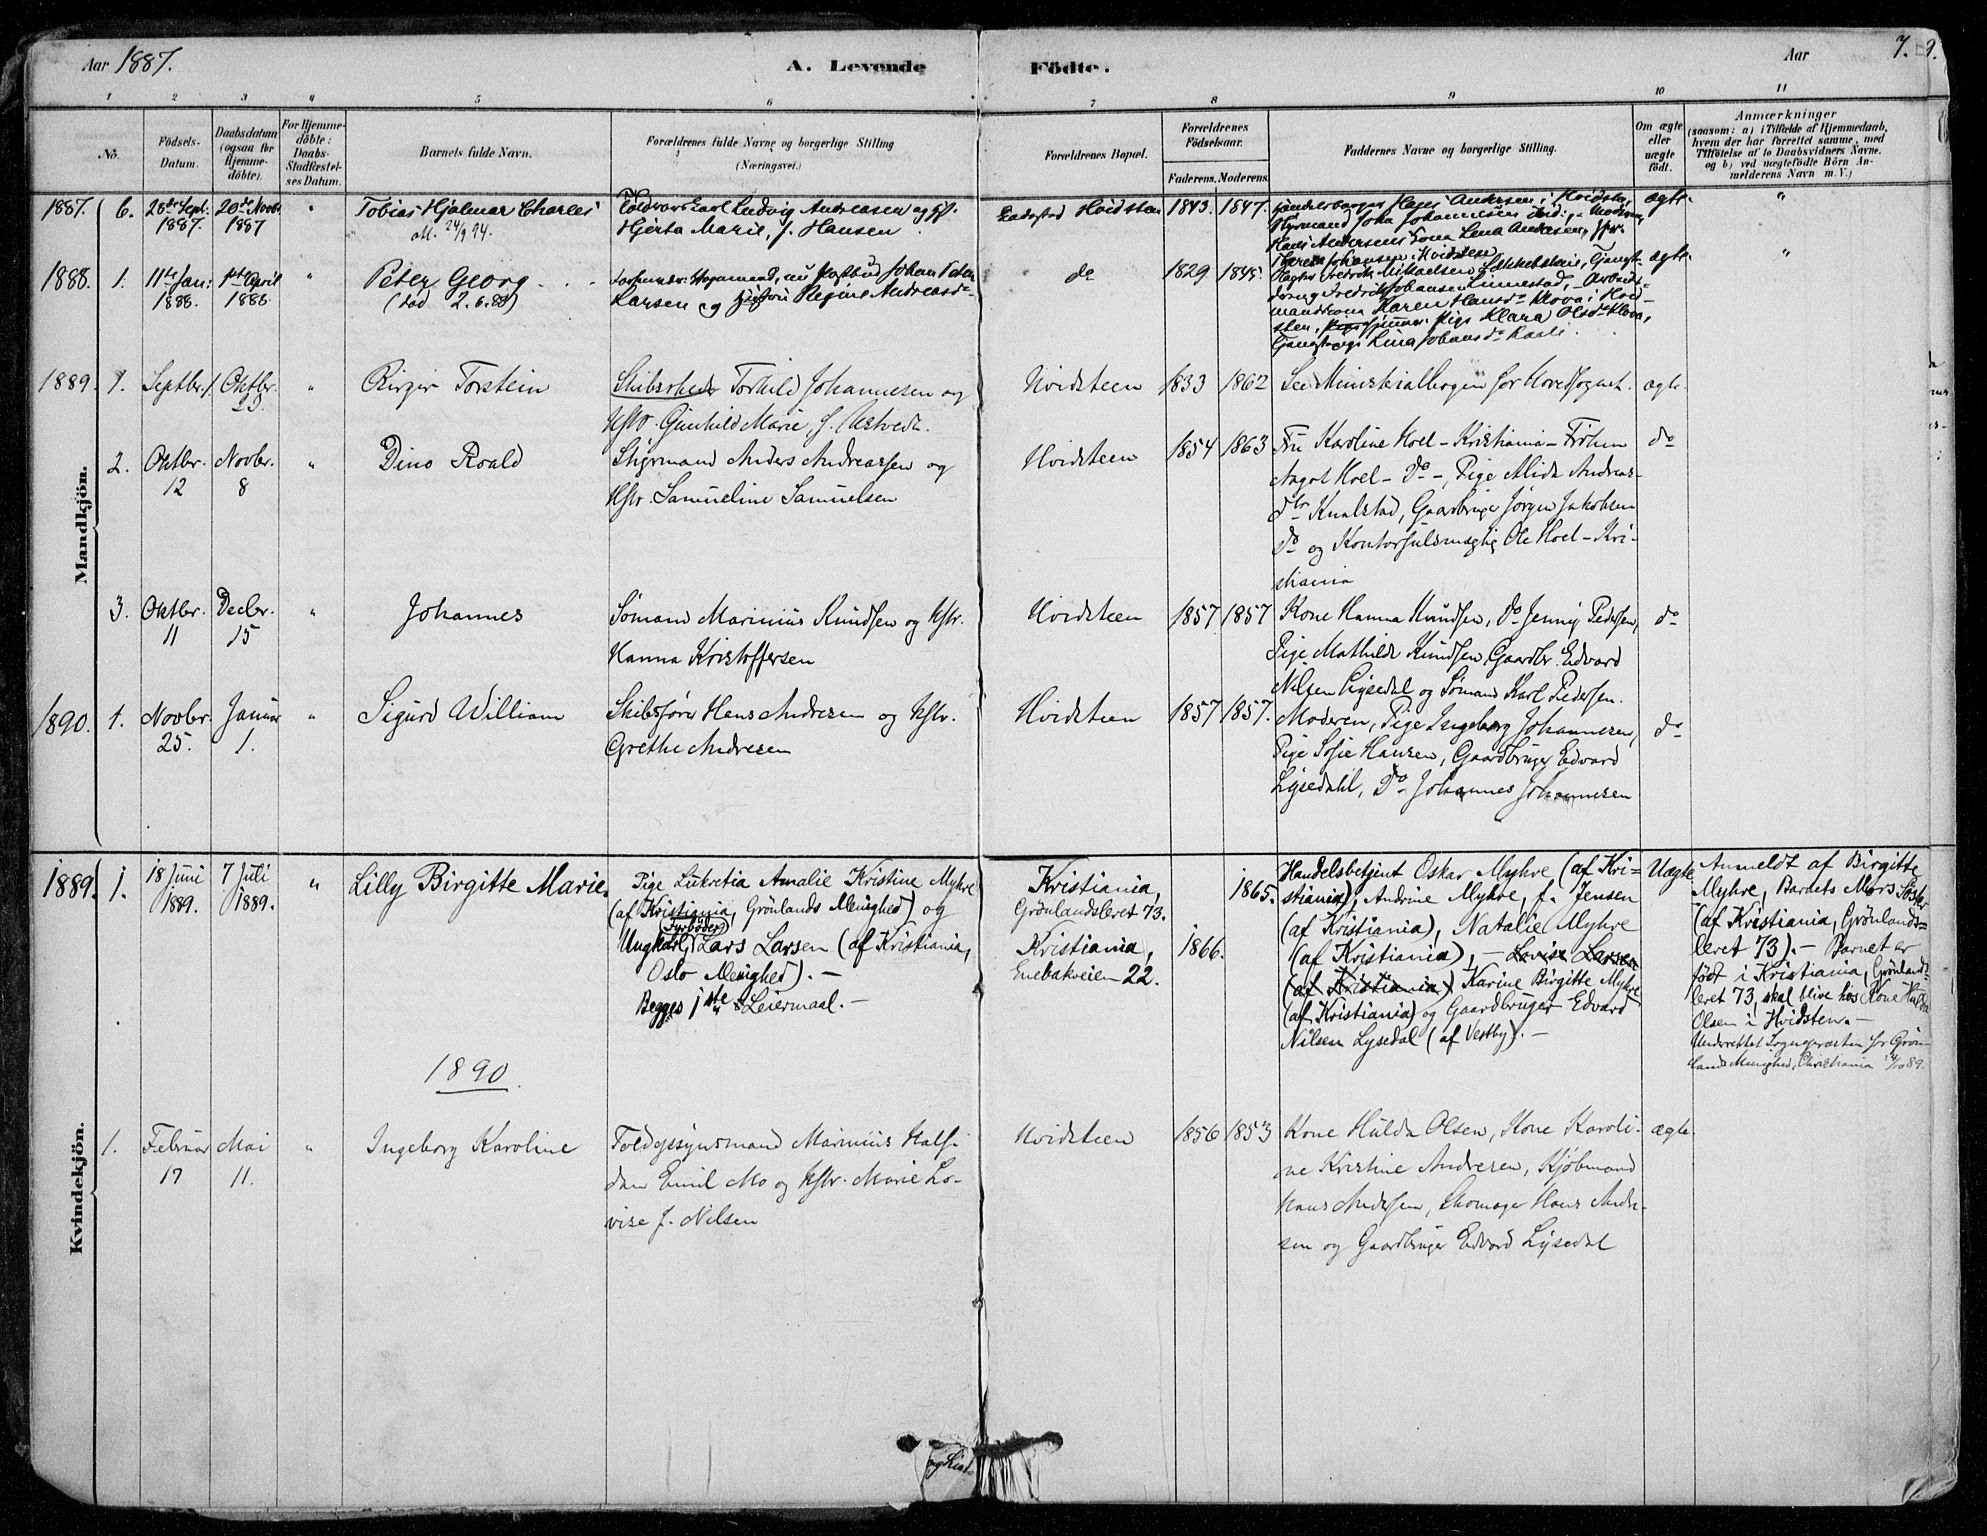 Aar 1887.
A. Levende Födte.
Aar
7.
1 2 3 4 5 6 7 8 9 10 11
No.
Födsels-Datum.
Daabsdatum (ogsaa for Hjemme-döbte).
For Hjemme-döbte: Daabs-Stadfæstel-ses Datum.
Barnets fulde Navn.
Forældrenes fulde Navne og borgerlige Stilling (Næringsvei.)
Forældrenes Bopæl.
Forældrenes Födselsaar.
Faderens. Moderens.
Faddernes Navne og borgerlige Stilling.
Om ægte eller uægte födt.
Anmærkninger
(saasom: a) i Tilfælde af Hjemmedaab,
hvem der har forrettet samme, med
Tilföielse af to Daabsvidners Navne,
og b) ved uægtefödte Börn An-
melderens Navn m. V.)
Mandkjön.
1887. 6. 1887. 20de Novbr. 1887 " Tobias Hjalmar Charles
Ludvig Andreasen og
Hjerta Marie, f. Hansen
Hvidsten 1843. 1847.
Hans Andersen i Hvidsten,
Styrmand Johannesen
Hans Andersens Kone Lena Andersen,
Johansen, Hvidsten
ægte. "
1888. 1. 11te Jan: 1888. 1ste April 1888 " Peter Georg
(död 2.6.88)
Johan Peter
Larsen og Hustru Regine Andreasdr
do 1829 1845.
Fredrik Mikaelsen
Fredrik Johansen Linnestad, Arbeids-
mandskone Karen Hansdr Mova i Hvid-
sten, Pige Klara Olsdr
Lina Johansdr
ægte "
1889. 1. Septbr. 1. Oktbr. 20. " Birger Torstein
Skibsrheder Torkild Johannesen og
Hstr. Gunhild Marie, f.
Hvidsteen 1833 1862 See Ministerialbogen for Hovedsognet. ægte.
2. Oktbr. 12 Novbr. 8 " Dino Roald
Styrmand Anders Andreassen og
Hstr. Samueline Samuelsen
Hvidsteen 1854 1863
Fru Karoline Hoel - Kristiania - Frøken
Aagot Hoel - Do -, Pige Alida Andreas-
dtr Knalstad, Gaardbruger Jørgen Jakobsen
Do og Kontorfuldmægtig Ole Hoel - Kri-
stiania
do
3. Oktbr. 11 Decbr. 15 " Johannes
Sömand Marinius Knudsen og Hstr.
Hanna Kristoffersen
Hvidsteen 1857 1857
Kone Hanna Knudsen, Do Jenny Pedersen,
Pige Mathilde Knudsen, Gaardbr. Edvard
Nilsen Lysedal og Sömand Karl Pedersen.
do
1890. 1. Novbr. 25. Januar 1. " Sigurd William
Skibsförer Hans Andresen og Hstr.
Grethe Andresen
Hvidsteen 1857 1857.
Moderen, Pige Ingeborg Johannesen,
Pige Sofie Hansen, Gaardbruger Edvard
Lysedahl, Do Johannes Johannesen
do
Kvindekjön.
1889. 1. 18 Juni 1889. 7 Juli 1889. " Lilly Birgitte Marie.
Pige Lukretia Amalie Kristine Myhre
(af Kristiania, Grönlands Menighed) og
Fyrböder
Ungkarl, Lars Larsen (af Kristiania,
Oslo Menighed). -
Begges 1ste Leiermaal. -
Kristiania,
Grönlandsleret 73.
Kristiania,
Enebakveien 22.
1866. 1865.
Handelsbetjent Oskar Myhre (af Kri-
stiania), Andrine Myhre, f. Jensen
(af Kristiania), Natalie Myhre
(af Kristiania), - Lovise Larsen
(af Kristiania) Karine Birgitte Myhre
(af Kristiania) og Gaardbruger Edvard
Nilsen Lysedal (af Vestby). -
Uægte
Anmeldt af Birgitte
Myhre, Barnets Mors Söster
(af Kristiania, Grönlands-
leret 73). - Barnet er
födt i Kristiania, Grönlands-
leret 73, skal blive hos Kone Hulda
Olsen i Hvidsten. -
Underrettet Sognepræsten for Grön-
lands Menighed, Christiania
1890.
1. Februar 17 Mai 11. " Ingeborg Karoline
Toldopsynsmand Marinius Half-
dan Emil Mo og Hstr. Marie Lo-
vise f. Nilsen
Hvidsteen 1856 1853
Kone Hulda Olsen, Kone Karoli-
ne Kristine Andresen, Kjöbmand
Hans Andersen, Skomager Hans Andre-
sen og Gaardbruger Edvard Lysedal
ægte